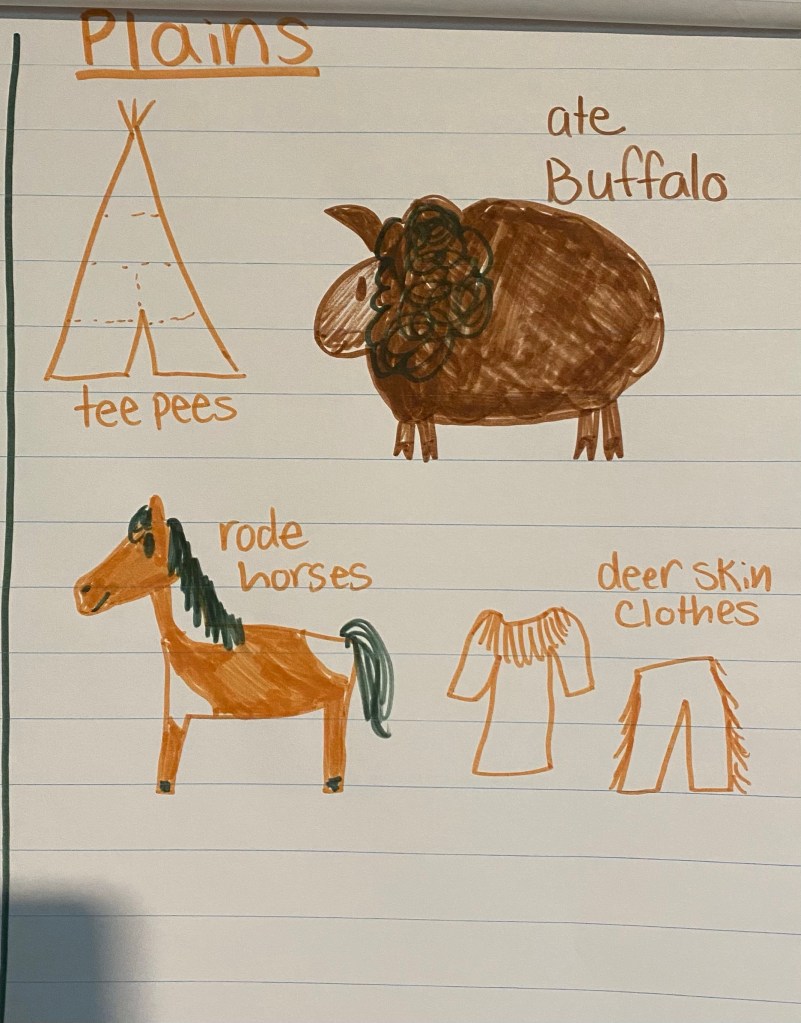 Plains
ate
Buffalo
tee pees
rode
horses
deer skin
clothes